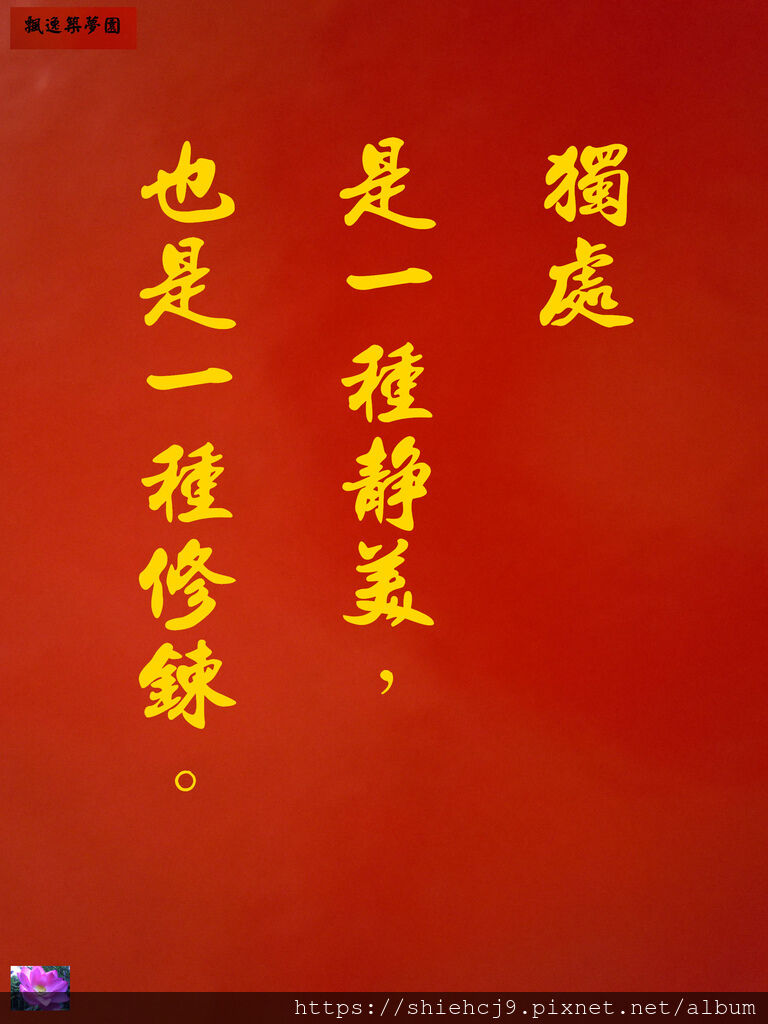 飄逸築夢園
獨處
是一種静美，
也是一種修鍊。
https://shiehcj9.pixnet.net/album